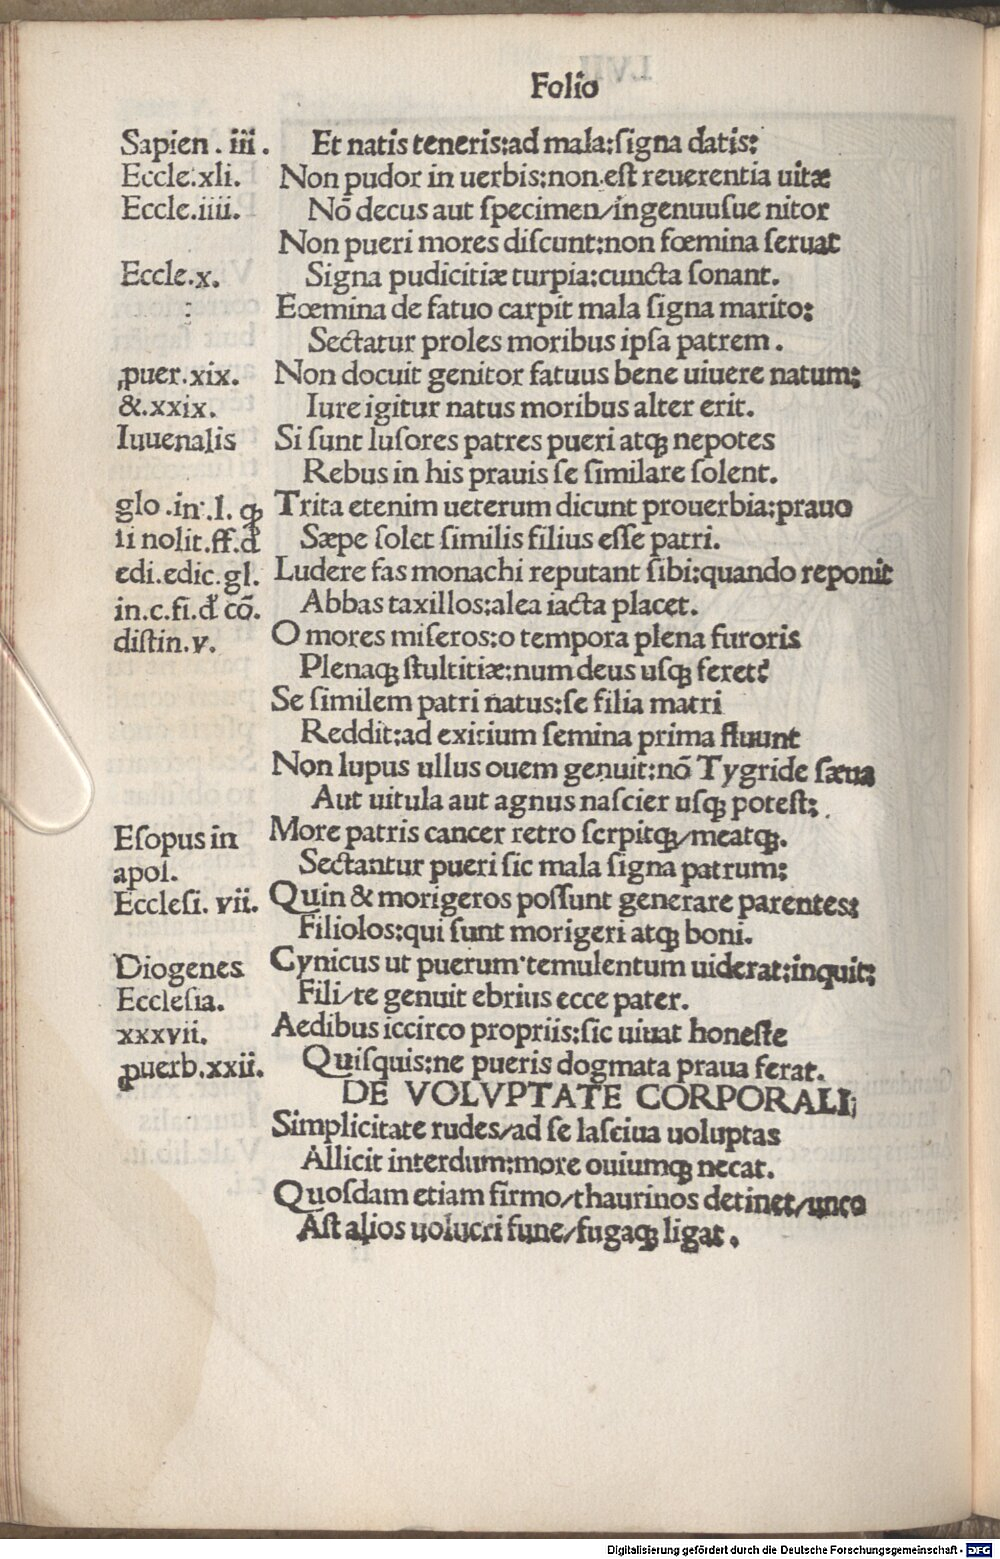 Folio
Sapien. iii. Et natis teneris:ad mala:ſigna datis:
Eccle.xli. Non pudor in uerbis:non eſt reuerentia uitæ
Eccle.iiii. Nõ decus aut ſpecimen/ingenuuſue nitor
Non pueri mores diſcunt:non fœmina ſeruat
Eccle.x. Signa pudicitiæ turpia:cuncta ſonant.
Eœmina de fatuo carpit mala ſigna marito:
Sectatur proles moribus ipſa patrem.
ꝓuer.xix. Non docuit genitor fatuus bene uiuere natum:
&.xxix. Iure igitur natus moribus alter erit.
Iuuenalis Si ſunt luſores patres pueri atqꝫ nepotes
Rebus in his prauis ſe ſimilare ſolent.
glo.in.l. qꝫ Trita etenim ueterum dicunt prouerbia:prauo
ii nolit.ff.đ Sæpe ſolet ſimilis filius eſſe patri.
edi.edic.gl. Ludere fas monachi reputant ſibi:quando reponit
in.c.fi.đ cõ. Abbas taxillos:alea iacta placet.
diſtin.v. O mores miſeros:o tempora plena furoris
Plenaqꝫ ſtultitiæ:num deus uſqꝫ feret?
Se ſimilem patri natus:ſe filia matri
Reddit:ad exitium ſemina prima fluunt
Non lupus ullus ouem genuit:nõ Tygride ſæua
Aut uitula aut agnus naſcier uſqꝫ poteſt:
Eſopus in More patris cancer retro ſerpitqꝫ/meatqꝫ.
apol. Sectantur pueri ſic mala ſigna patrum:
Eccleſi. vii. Quin & morigeros poſſunt generare parentes:
Filiolos:qui ſunt morigeri atqꝫ boni.
Diogenes Cynicus ut puerum temulentum uiderat:inquit:
Eccleſia. Fili/te genuit ebrius ecce pater.
xxxvii. Aedibus iccirco propriis:ſic uiuat honeſte
ꝓuerb.xxii. Quiſquis:ne pueris dogmata praua ferat.
DE VOLVPTATE CORPORALI;
Simplicitate rudes/ad ſe laſciua uoluptas
Allicit interdum:more ouiumqꝫ necat.
Quoſdam etiam firmo/thaurinos detinet/unco
Aſt alios uolucri fune/fugaqꝫ ligat.
Digitalisierung gefördert durch die Deutsche Forschungsgemeinschaft - DFG